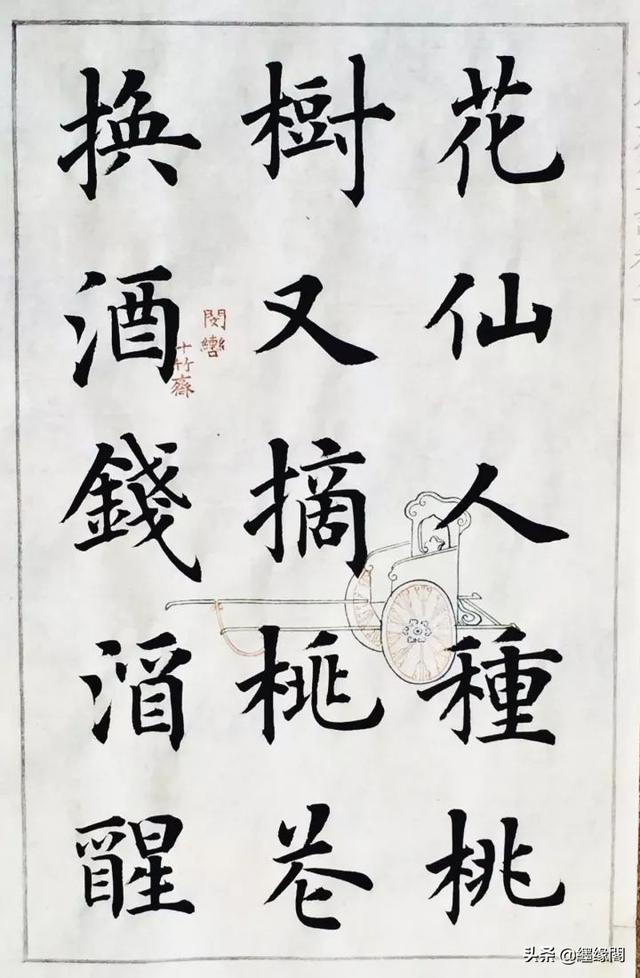 花仙人種桃
樹又摘桃花
換酒錢酒醒
閔巒
十竹齋
头条 @纒缘閣